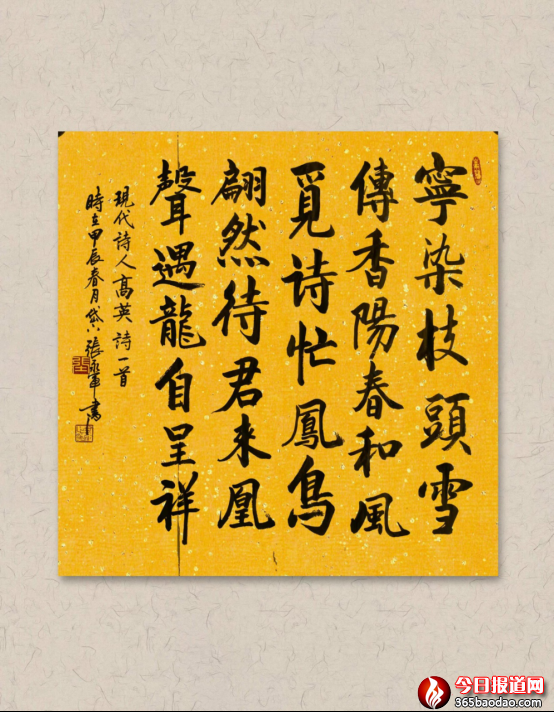 寧染枝頭雪
傳香陽春和風
覓詩忙鳳鳥
翩然待君来凰
聲遇龍自呈祥
現代詩人高英詩一首
時在甲辰春月張軍書
今日报道网
365baodao.com